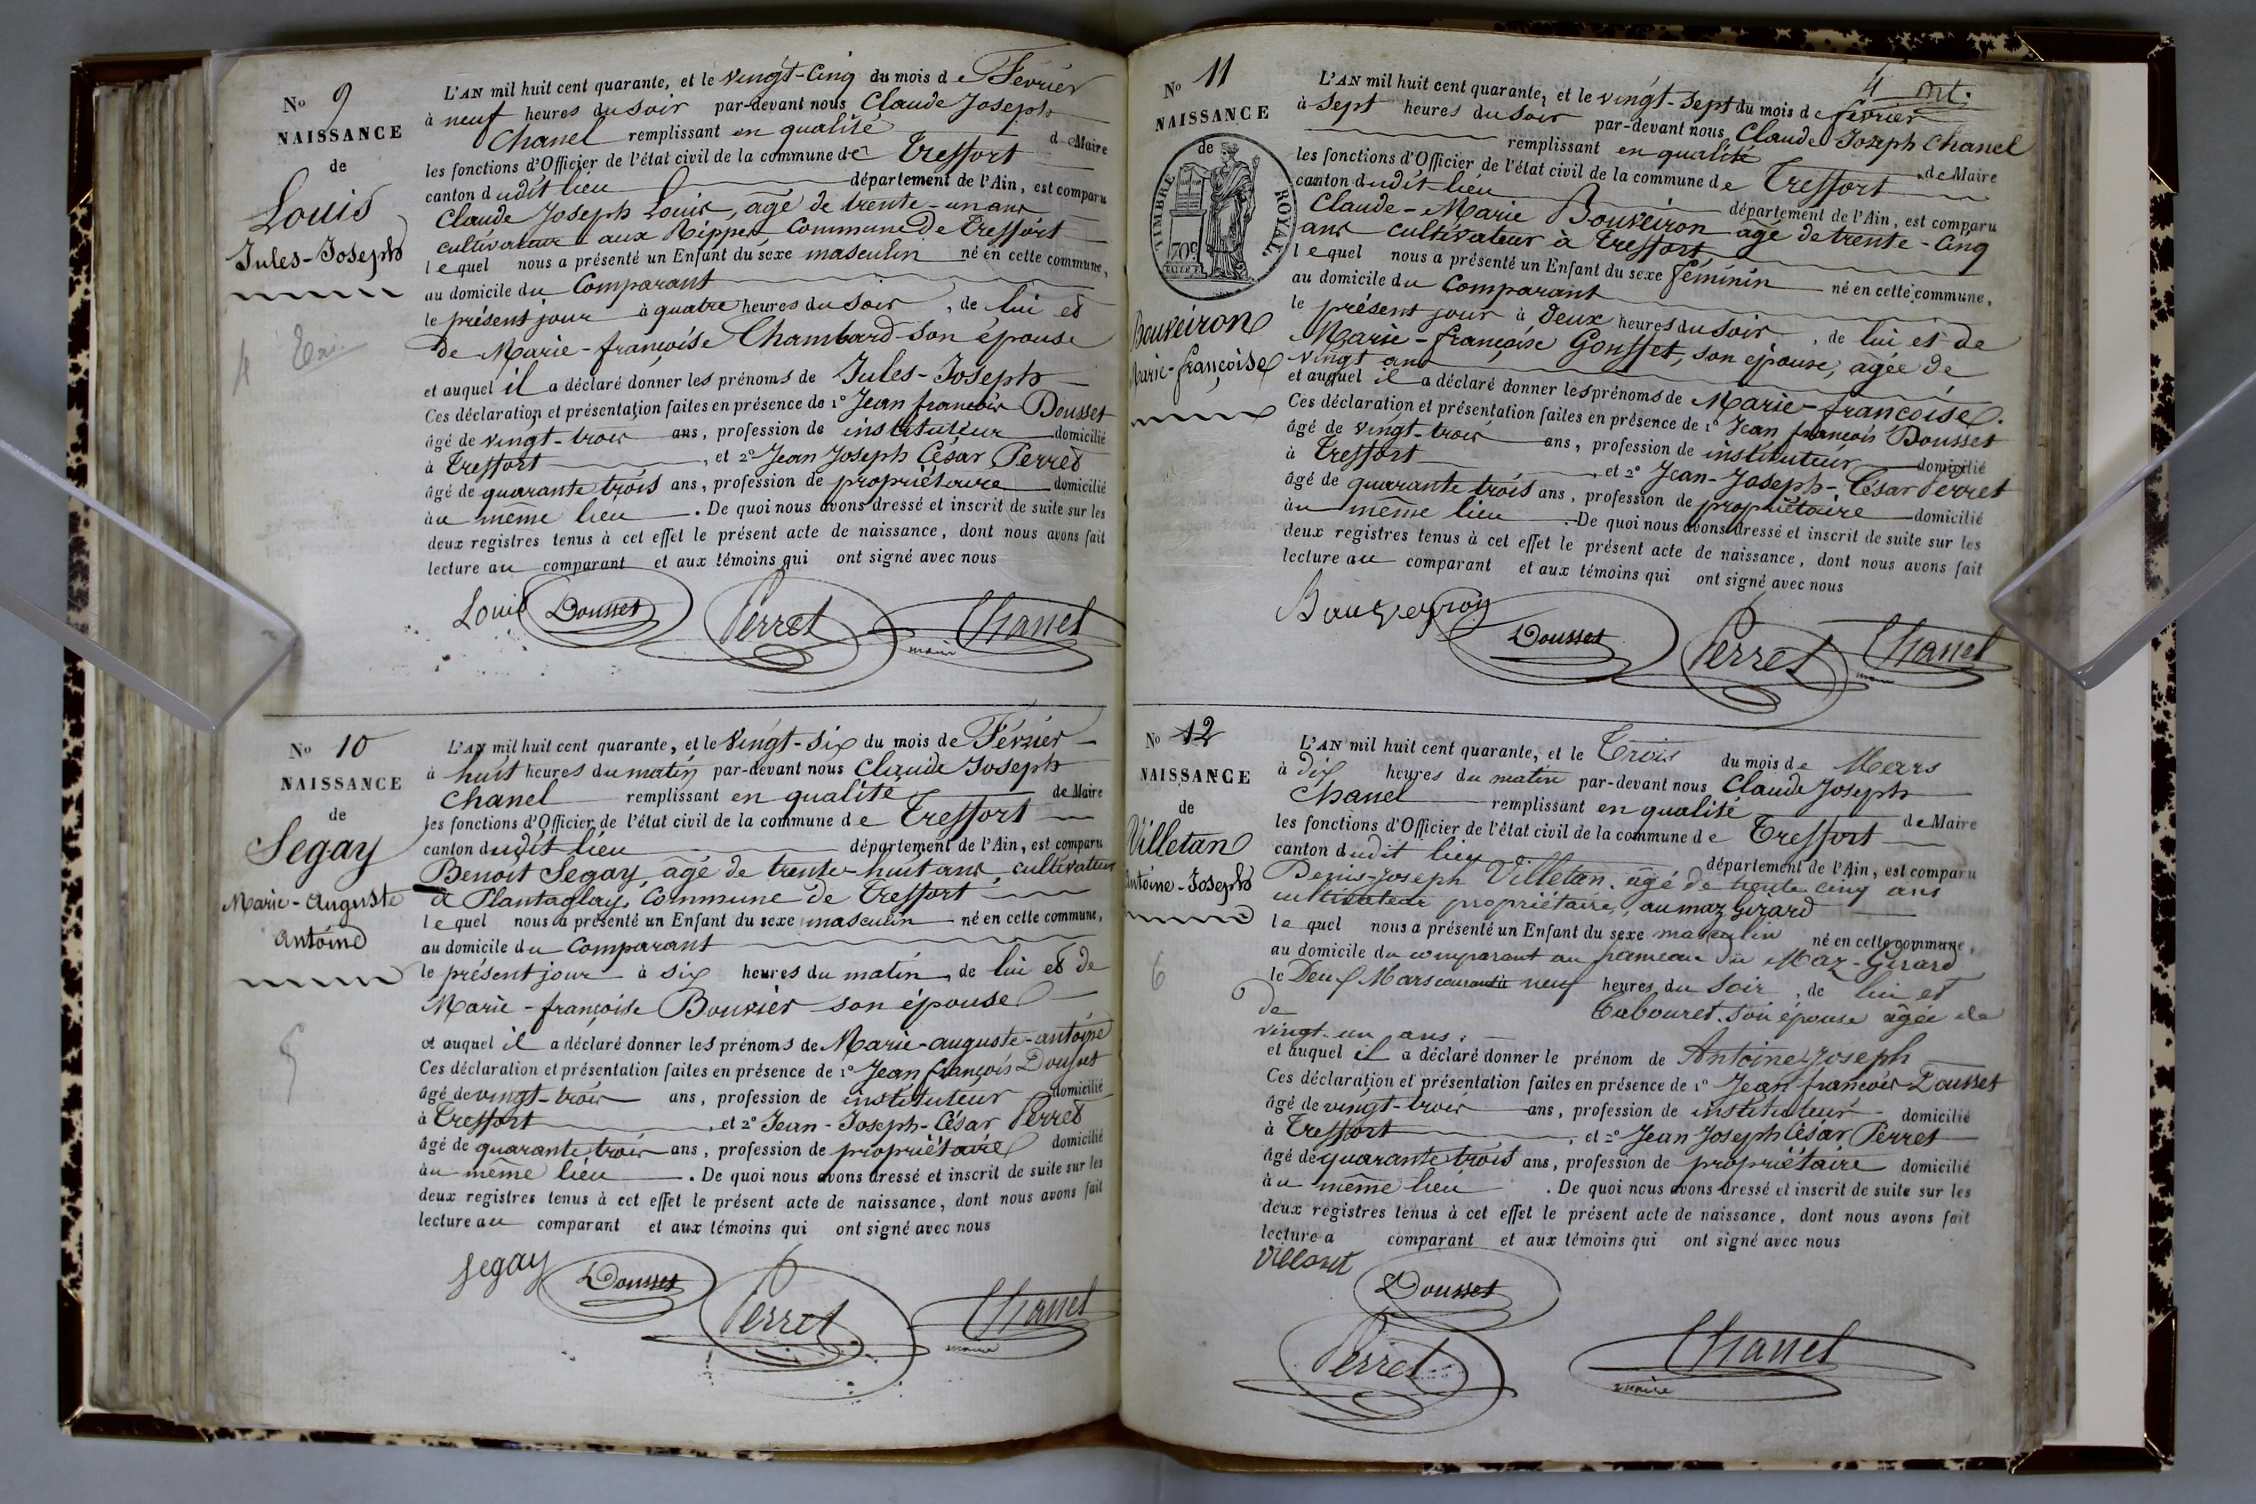 No 9
NAISSANCE
de
Louis
Jules-Joseph
L'AN mil huit cent quarante, et le vingt-cinq du mois de Février
à neuf heures du soir par-devant nous Claude Joseph
Chanel remplissant en qualité de Maire
les fonctions d'Officier de l'état civil de la commune de Treffort
canton dudit lieu département de l'Ain, est comparu
Claude Joseph Louis, âgé de trente-un ans
cultivateur aux Rippes Commune De Treffort
lequel nous a présenté un Enfant du sexe masculin né en cette commune,
au domicile du Comparant
le présent jour à quatre heures du soir, de lui et
de Marie-françoise Chambard son épouse
et auquel il a déclaré donner les prénoms de Jules-Joseph
Ces déclaration et présentation faites en présence de 1º Jean françois Dousset
âgé de vingt-trois ans, profession de instituteur domicilié
à Treffort, et 2º Jean Joseph César Perret
âgé de quarante trois ans, profession de propriétaire domicilié
au même lieu. De quoi nous avons dressé et inscrit de suite sur les
deux registres tenus à cet effet le présent acte de naissance, dont nous avons fait
lecture au comparant et aux témoins qui ont signé avec nous
Louis Dousset Perret Chanel
maire
No 10
NAISSANCE
de
Segay
Marie-Auguste
Antoine
5
L'AN mil huit cent quarante, et le vingt-six du mois de Février
à huit heures du matin par-devant nous Claude Joseph
Chanel remplissant en qualité de Maire
les fonctions d'Officier de l'état civil de la commune de Treffort
canton dudit lieu département de l'Ain, est comparu
Benoit Segay, âgé de trente-huit ans, cultivateur
à Plantaglay, Commune de Treffort
lequel nous a présenté un Enfant du sexe masculin né en cette commune,
au domicile du Comparant
le présent jour à six heures du matin, de lui et de
Marie-françoise Bouvier son épouse
et auquel il a déclaré donner les prénoms de Marie-auguste-antoine
Ces déclaration et présentation faites en présence de 1º Jean françois Dousset
âgé de vingt-trois ans, profession de instituteur domicilié
à Treffort, et 2º Jean-Joseph-César Perret
âgé de quarante trois ans, profession de propriétaire domicilié
au même lieu. De quoi nous avons dressé et inscrit de suite sur les
deux registres tenus à cet effet le présent acte de naissance, dont nous avons fait
lecture au comparant et aux témoins qui ont signé avec nous
Segay Dousset Perret Chanel
maire
4
No 11
NAISSANCE
de
TIMBRE ROYAL
70c
Bouveiron
Marie-françoise
L'AN mil huit cent quarante, et le vingt-sept du mois de février
à sept heures du soir par-devant nous Claude Joseph Chanel
remplissant en qualité de Maire
les fonctions d'Officier de l'état civil de la commune de Treffort
canton dudit lieu département de l'Ain, est comparu
Claude-Marie Bouveiron âgé de trente-cinq
ans cultivateur à Treffort
lequel nous a présenté un Enfant du sexe féminin né en cette commune,
au domicile du Comparant
le présent jour à deux heures du soir, de lui et de
Marie-françoise Gousset, son épouse, âgée de
vingt ans
et auquel il a déclaré donner les prénoms de Marie-françoise.
Ces déclaration et présentation faites en présence de 1º Jean françois Dousset
âgé de vingt-trois ans, profession de instituteur domicilié
à Treffort, et 2º Jean-Joseph-César Perret
âgé de quarante trois ans, profession de propriétaire domicilié
au même lieu. De quoi nous avons dressé et inscrit de suite sur les
deux registres tenus à cet effet le présent acte de naissance, dont nous avons fait
lecture au comparant et aux témoins qui ont signé avec nous
Bouveyron Dousset Perret Chanel
maire
No 12
NAISSANCE
de
Villetan
Antoine-Joseph
6
L'AN mil huit cent quarante, et le Trois du mois de Mars
à dix heures du matin par-devant nous Claude Joseph
Chanel remplissant en qualité de Maire
les fonctions d'Officier de l'état civil de la commune de Treffort
canton dudit lieu département de l'Ain, est comparu
Denis-Joseph Villetan, âgé de trente cinq ans
cultivateur propriétaire, au maz Girard
lequel nous a présenté un Enfant du sexe masculin né en cette commune,
au domicile du comparant au hameau du Maz-Girard
le Deux Mars courant à neuf heures du soir, de lui et
de Tabouret, son épouse âgée de
vingt-un ans.
et auquel il a déclaré donner le prénom de Antoine Joseph
Ces déclaration et présentation faites en présence de 1º Jean françois Dousset
âgé de vingt-trois ans, profession de instituteur domicilié
à Treffort, et 2º Jean Joseph César Perret
âgé de quarante trois ans, profession de propriétaire domicilié
au même lieu. De quoi nous avons dressé et inscrit de suite sur les
deux registres tenus à cet effet le présent acte de naissance, dont nous avons fait
lecture a comparant et aux témoins qui ont signé avec nous
Dousset
Perret Chanel
maire